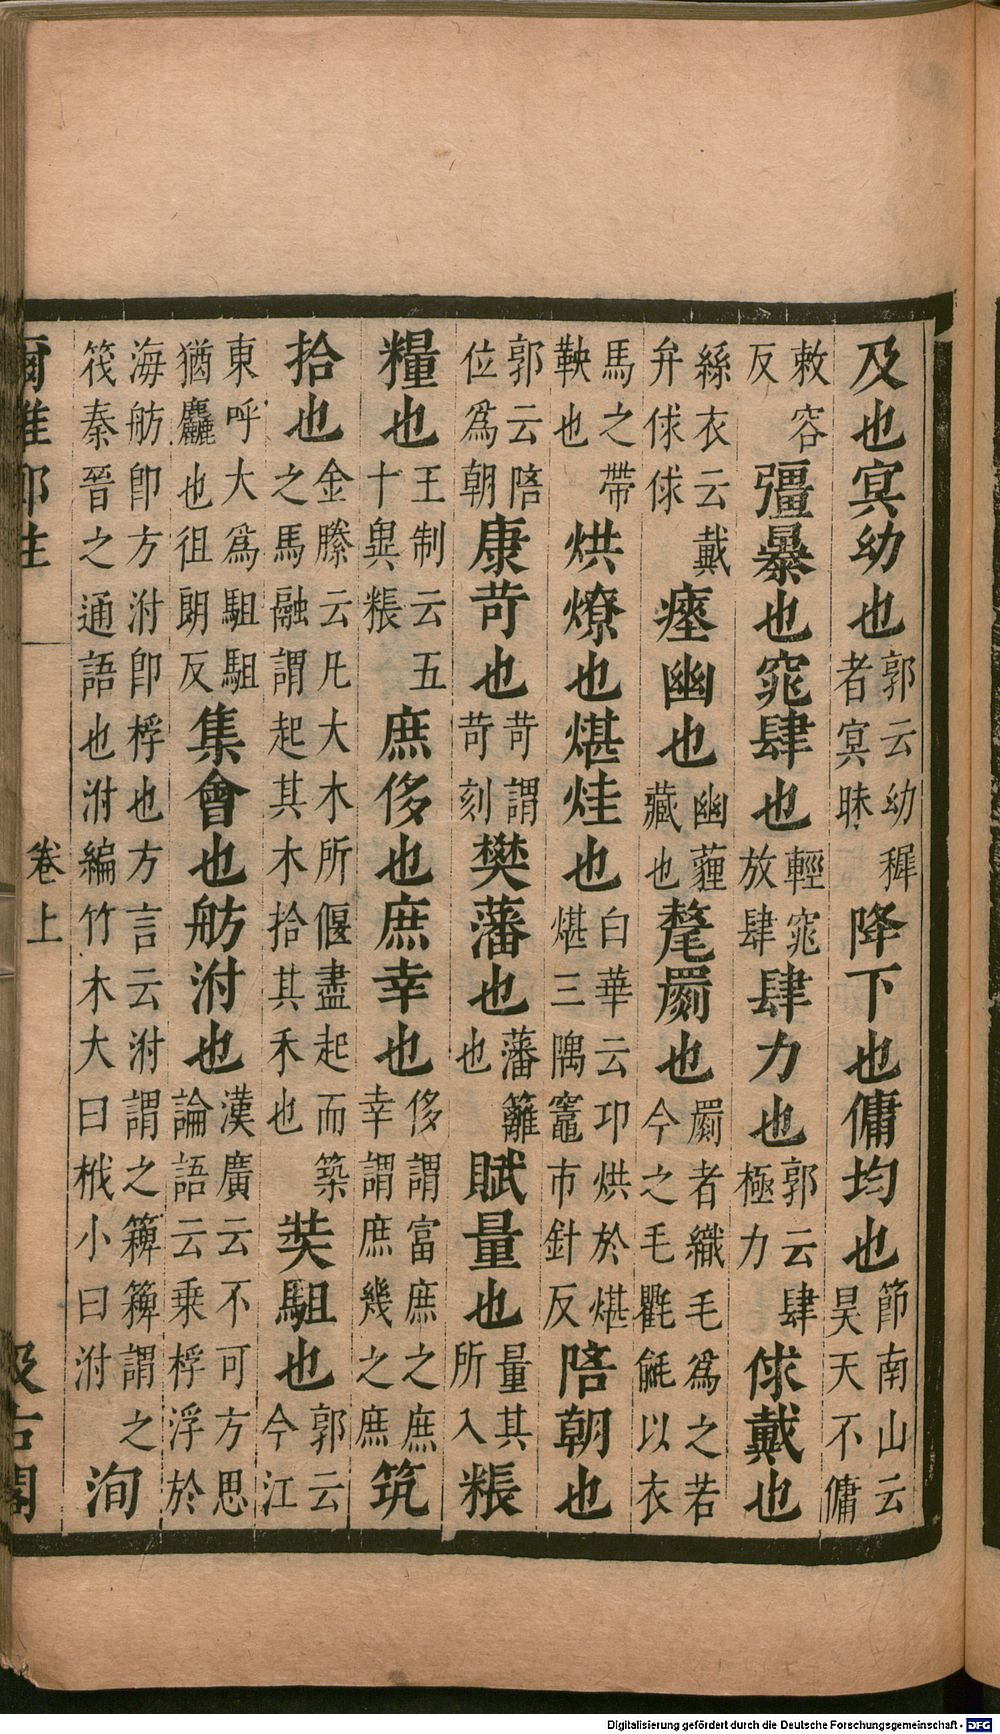 及也冥幼也郭云幼穉者冥昧降下也傭均也節南山云昊天不傭
敕容反彊暴也窕肆也輕窕放肆肆力也郭云肆極力俅戴也
絲衣云戴弁俅俅瘞幽也幽薶藏也氂罽也罽者織毛為之若今之毛氍毹以衣
馬之帶鞅也烘燎也煁烓也白華云卬烘於煁煁三隅竈市針反陪朝也
郭云陪位為朝康苛也苛謂苛刻樊藩也藩籬也賦量也量其所入粻
糧也王制云五十異粻庶侈也庶幸也侈謂富庶之庶幸謂庶幾之庶筑
拾也金縢云凡大木所偃盡起而築之馬融謂起其木拾其禾也奘駔也郭云今江
東呼大為駔駔猶麤也徂朗反集會也舫泭也漢廣云不可方思論語云乘桴浮於
海舫即方泭即桴也方言云泭謂之䉬䉬謂之筏秦晉之通語也泭編竹木大曰栰小曰泭洵
爾雅郭注
卷上
汲古閣
Digitalisierung gefördert durch die Deutsche Forschungsgemeinschaft - DFG